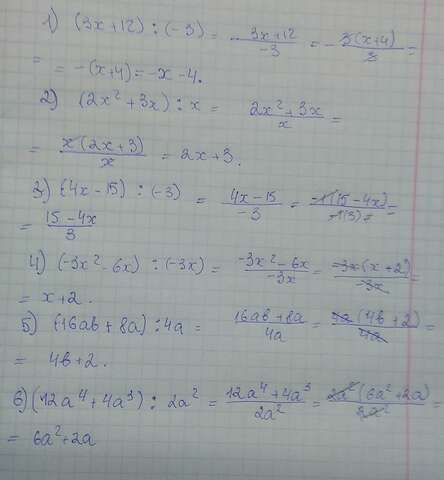 1) (3x+12) : (-3) = - 3x+12/-3 = - 3(x+4)/3 =
= -(x+4) = -x-4.
2) (2x² + 3x) : x = 2x²+3x/x =
= x(2x+3)/x = 2x+3.
3) (4x-15) : (-3) = 4x-15/-3 = -1(15-4x)/-1(3) =
= 15-4x/3
4) (-3x²-6x) : (-3x) = -3x²-6x/-3x = -3x(x+2)/-3x =
= x+2.
5) (16ab+8a) : 4a = 16ab+8a/4a = 4a(4b+2)/4a =
= 4b+2.
6) (12a⁴+4a³) : 2a² = 12a⁴+4a³/2a² = 2a²(6a²+2a)/2a² =
= 6a²+2a